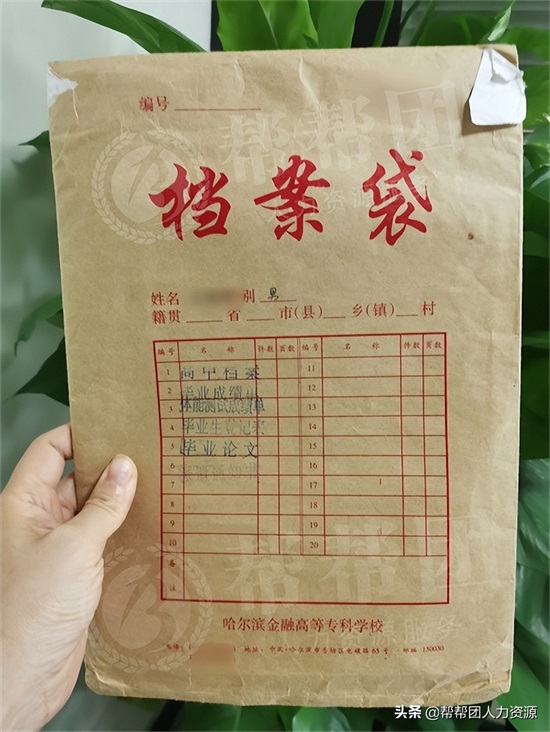 编号
档案袋
姓名 别 男
籍贯 省 市(县) 乡(镇) 村
编号 名称 件数 页数 编号 名称 件数 页数
1 高中档案 11
2 毕业成绩单 12
3 体能测试成绩单 13
4 毕业生登记表 14
5 毕业论文 15
6 16
7 17
8 18
9 19
10 20
备注
哈尔滨金融高等专科学校
电话: 地址: 中武·哈尔滨市香坊区电碳路65号 邮编 150030
帮帮团
人力资源服务
头条 @帮帮团人力资源